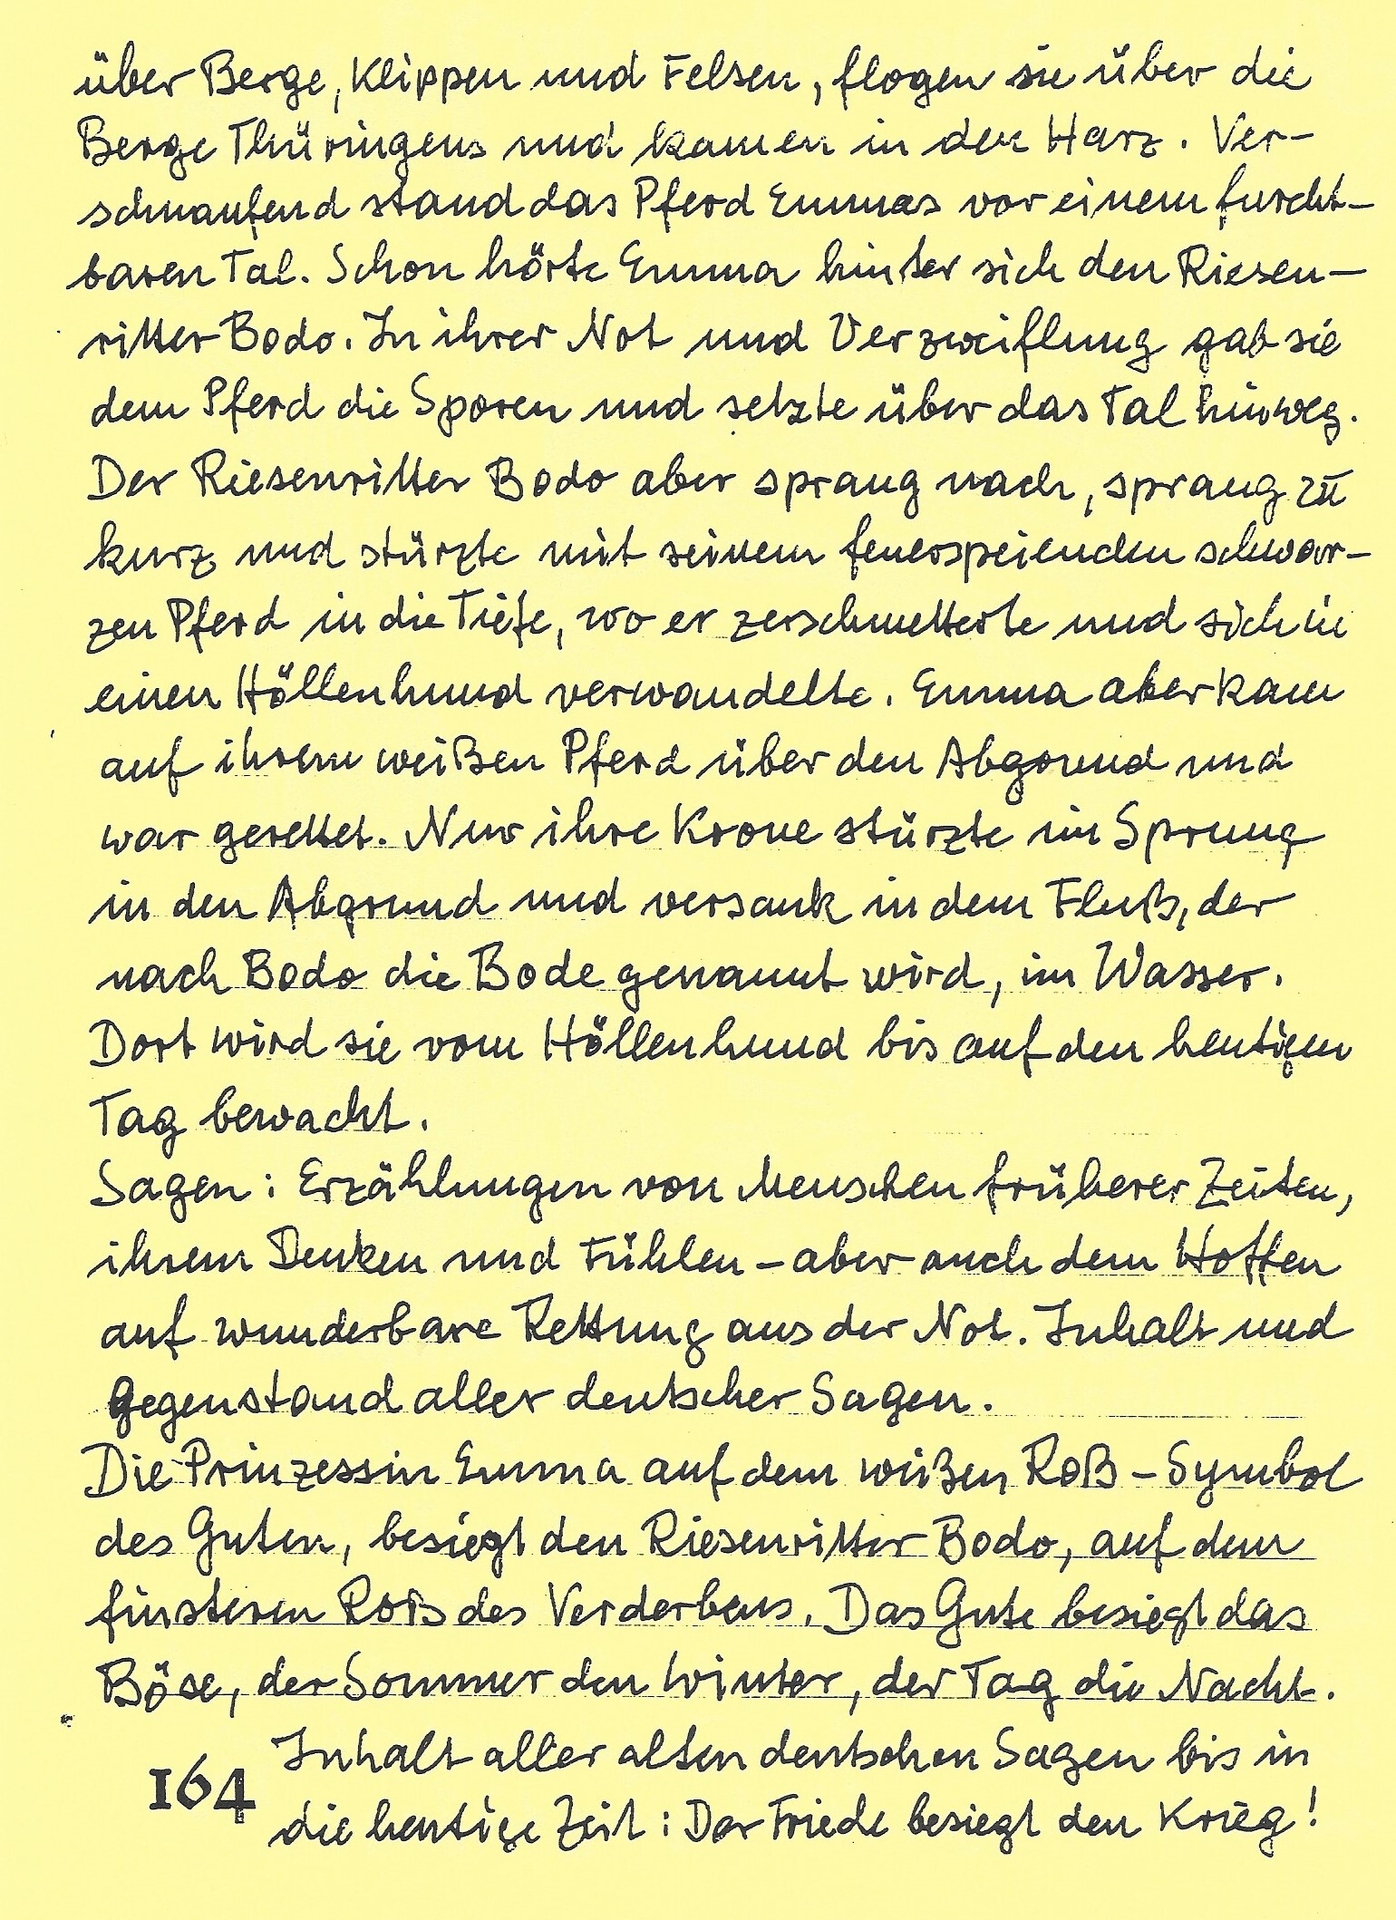 über Berge, Klippen und Felsen, flogen sie über die
Berge Thüringens und kamen in den Harz. Ver-
schnaufend stand das Pferd Emmas vor einem furcht-
baren Tal. Schon hörte Emma hinter sich den Riesen-
ritter Bodo. In ihrer Not und Verzweiflung gab sie
dem Pferd die Sporen und setzte über das Tal hinweg.
Der Riesenritter Bodo aber sprang nach, sprang zu
kurz und stürzte mit seinem feuerspeienden schwar-
zen Pferd in die Tiefe, wo er zerschmetterte und sich in
einen Höllenhund verwandelte. Emma aber kam
auf ihrem weißen Pferd über den Abgrund und
war gerettet. Nur ihre Krone stürzte im Sprung
in den Abgrund und versank in dem Fluß, der
nach Bodo die Bode genannt wird, im Wasser.
Dort wird sie vom Höllenhund bis auf den heutigen
Tag bewacht.
Sagen: Erzählungen von Menschen früherer Zeiten,
ihrem Denken und Fühlen – aber auch dem Hoffen
auf wunderbare Rettung aus der Not. Inhalt und
Gegenstand aller deutscher Sagen.
Die Prinzessin Emma auf dem weißen Roß – Symbol
des Guten, besiegt den Riesenritter Bodo, auf dem
finsteren Roß des Verderbens. Das Gute besiegt das
Böse, der Sommer den Winter, der Tag die Nacht.
Inhalt aller alten deutschen Sagen bis in
die heutige Zeit: Der Friede besiegt den Krieg!
164